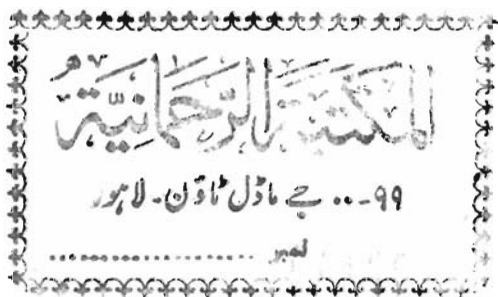 المکتبۃ الرّحمانیّۃ
۹۹-۰۰ جے ماڈل ٹاؤن۔ لاہور
نمبر ....................